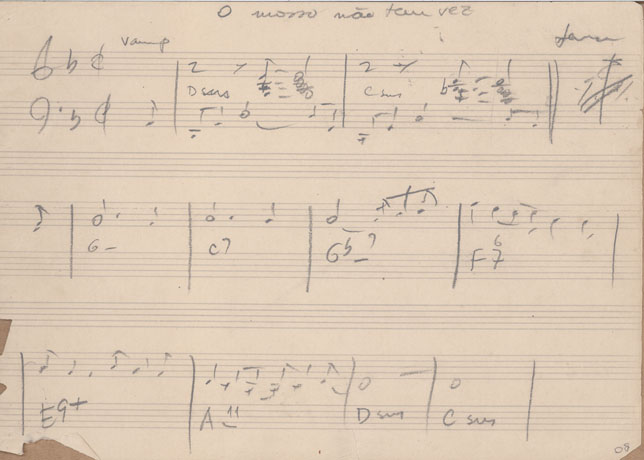 O mosso não tem vez
Vamp
2 2
D sus C sus
G- C7 Gb-7 F 6 7
E9+ A 11 D sus C sus
08